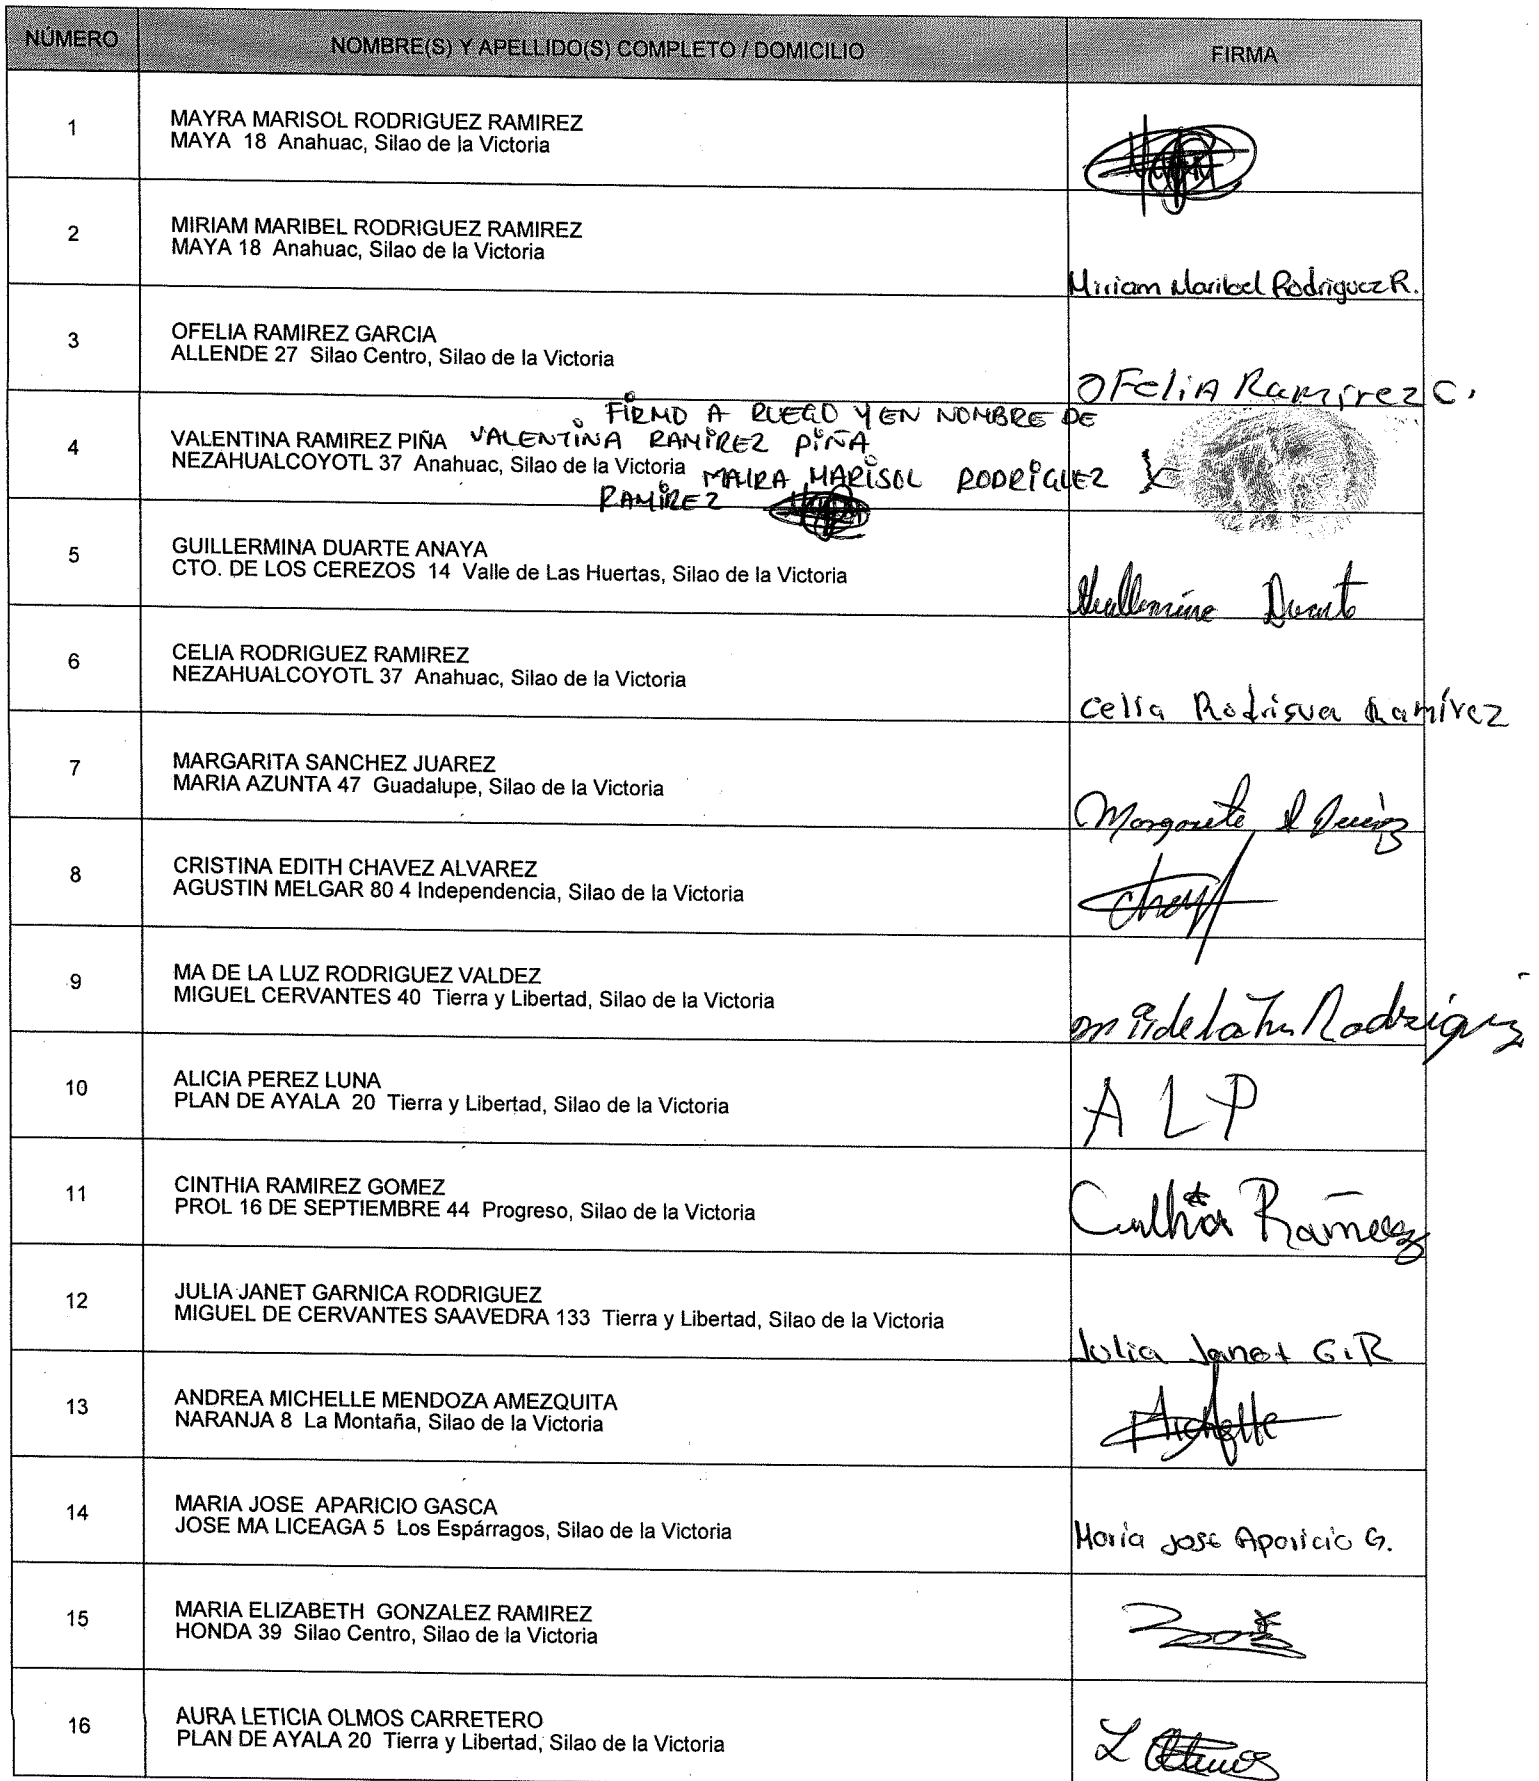 NÚMERO NOMBRE(S) Y APELLIDO(S) COMPLETO / DOMICILIO FIRMA
1 MAYRA MARISOL RODRIGUEZ RAMIREZ
MAYA 18 Anahuac, Silao de la Victoria
2 MIRIAM MARIBEL RODRIGUEZ RAMIREZ
MAYA 18 Anahuac, Silao de la Victoria
Miriam Maribel Rodriguez R.
3 OFELIA RAMIREZ GARCIA
ALLENDE 27 Silao Centro, Silao de la Victoria
OFeliA Ramirez C.
FIRMO A RUEGO Y EN NOMBRE DE
4 VALENTINA RAMIREZ PIÑA VALENTINA RAMIREZ PIÑA
NEZAHUALCOYOTL 37 Anahuac, Silao de la Victoria MAIRA MARISOL RODRIGUEZ X
RAMIREZ
5 GUILLERMINA DUARTE ANAYA
CTO. DE LOS CEREZOS 14 Valle de Las Huertas, Silao de la Victoria
Guillermina Duarte
6 CELIA RODRIGUEZ RAMIREZ
NEZAHUALCOYOTL 37 Anahuac, Silao de la Victoria
Celia Ramírez
7 MARGARITA SANCHEZ JUAREZ
MARIA AZUNTA 47 Guadalupe, Silao de la Victoria
Margarita
8 CRISTINA EDITH CHAVEZ ALVAREZ
AGUSTIN MELGAR 80 4 Independencia, Silao de la Victoria
9 MA DE LA LUZ RODRIGUEZ VALDEZ
MIGUEL CERVANTES 40 Tierra y Libertad, Silao de la Victoria
Rodriguez
10 ALICIA PEREZ LUNA
PLAN DE AYALA 20 Tierra y Libertad, Silao de la Victoria
A L P
11 CINTHIA RAMIREZ GOMEZ
PROL 16 DE SEPTIEMBRE 44 Progreso, Silao de la Victoria
Cinthia Ramirez
12 JULIA JANET GARNICA RODRIGUEZ
MIGUEL DE CERVANTES SAAVEDRA 133 Tierra y Libertad, Silao de la Victoria
Julia Janet G.R
13 ANDREA MICHELLE MENDOZA AMEZQUITA
NARANJA 8 La Montaña, Silao de la Victoria
Michelle
14 MARIA JOSE APARICIO GASCA
JOSE MA LICEAGA 5 Los Espárragos, Silao de la Victoria
María José Aparicio G.
15 MARIA ELIZABETH GONZALEZ RAMIREZ
HONDA 39 Silao Centro, Silao de la Victoria
16 AURA LETICIA OLMOS CARRETERO
PLAN DE AYALA 20 Tierra y Libertad, Silao de la Victoria
L Olmos